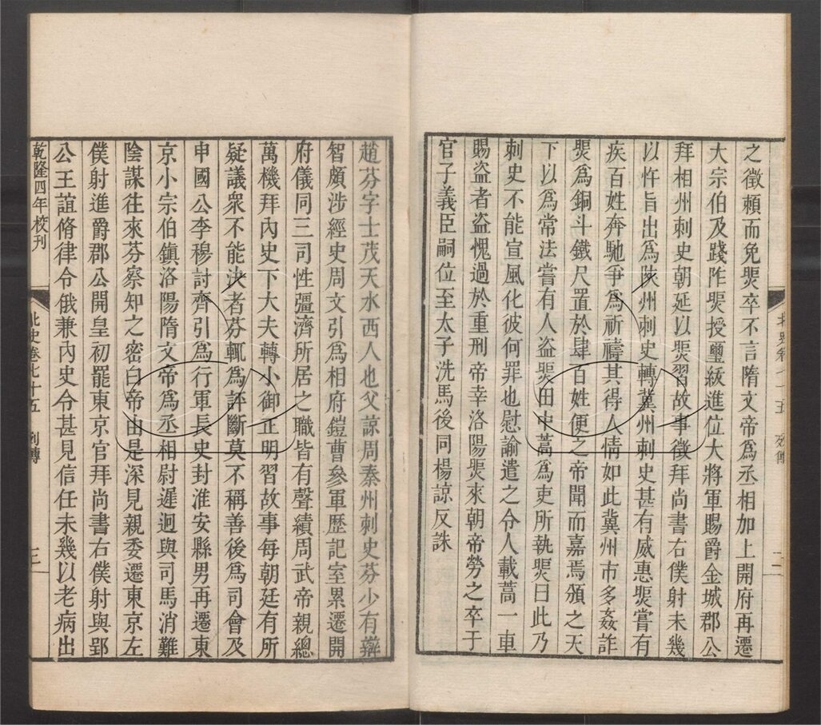 之徵頼而免煚卒不言隋文帝爲丞相加上開府再遷
大宗伯及踐阼煚授璽紱進位大將軍賜爵金城郡公
拜相州刺史朝廷以煚習故事徵拜尚書右僕射未幾
以忤旨出爲陜州刺史轉冀州刺史甚有威惠煚嘗有
疾百姓奔馳爭爲祈禱其得人情如此冀州市多姦詐
煚爲銅斗鐵尺置於肆百姓便之帝聞而嘉焉頒之天
下以爲常法嘗有人盜煚田中蒿爲吏所執煚曰此乃
刺史不能宣風化彼何罪也慰諭遣之令人載蒿一車
賜盜者盜愧過於重刑帝幸洛陽煚來朝帝勞之卒于
官子義臣嗣位至太子洗馬後同楊諒反誅
趙芬字士茂天水西人也父諒周秦州刺史芬少有辯
智頗涉經史周文引爲相府鎧曹參軍歷記室累遷開
府儀同三司性彊濟所居之職皆有聲績周武帝親總
萬機拜內史下大夫轉小御正明習故事每朝廷有所
疑議衆不能決者芬輒爲評斷莫不稱善後爲司會及
申國公李穆討齊引爲行軍長史封淮安縣男再遷東
京小宗伯鎮洛陽隋文帝爲丞相尉遲迥與司馬消難
陰謀往來芬察知之密白帝由是深見親委遷東京左
僕射進爵郡公開皇初罷東京官拜尚書右僕射與郢
公王誼脩律令俄兼內史令甚見信任未幾以老病出
乾隆四年校刊
北史卷七十五 列傳 三